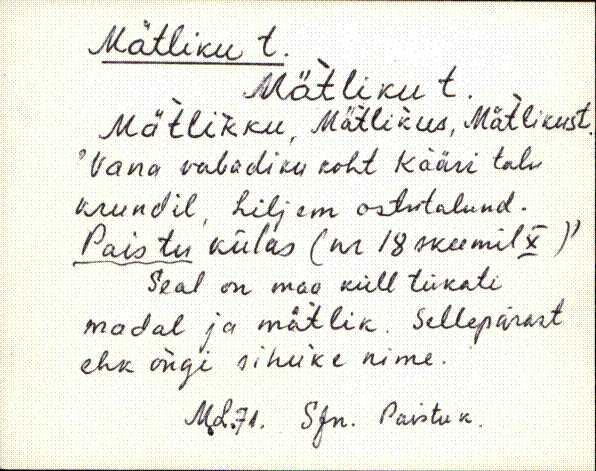 Mätliku t.
Mät̀liku t.
Mät̀likku, Mät̀likus, Mät̀likust.
'Vana vabadiku koht Kääri talu
krundil, hiljem ostutalund.
Paistu külas (nr 18 skeemil X)'
Seal on maa küll tükati
madal ja mät̀lik. Sellepärast
ehk ongi sihuke nime.
Md.71. Sjn. Paistu k.